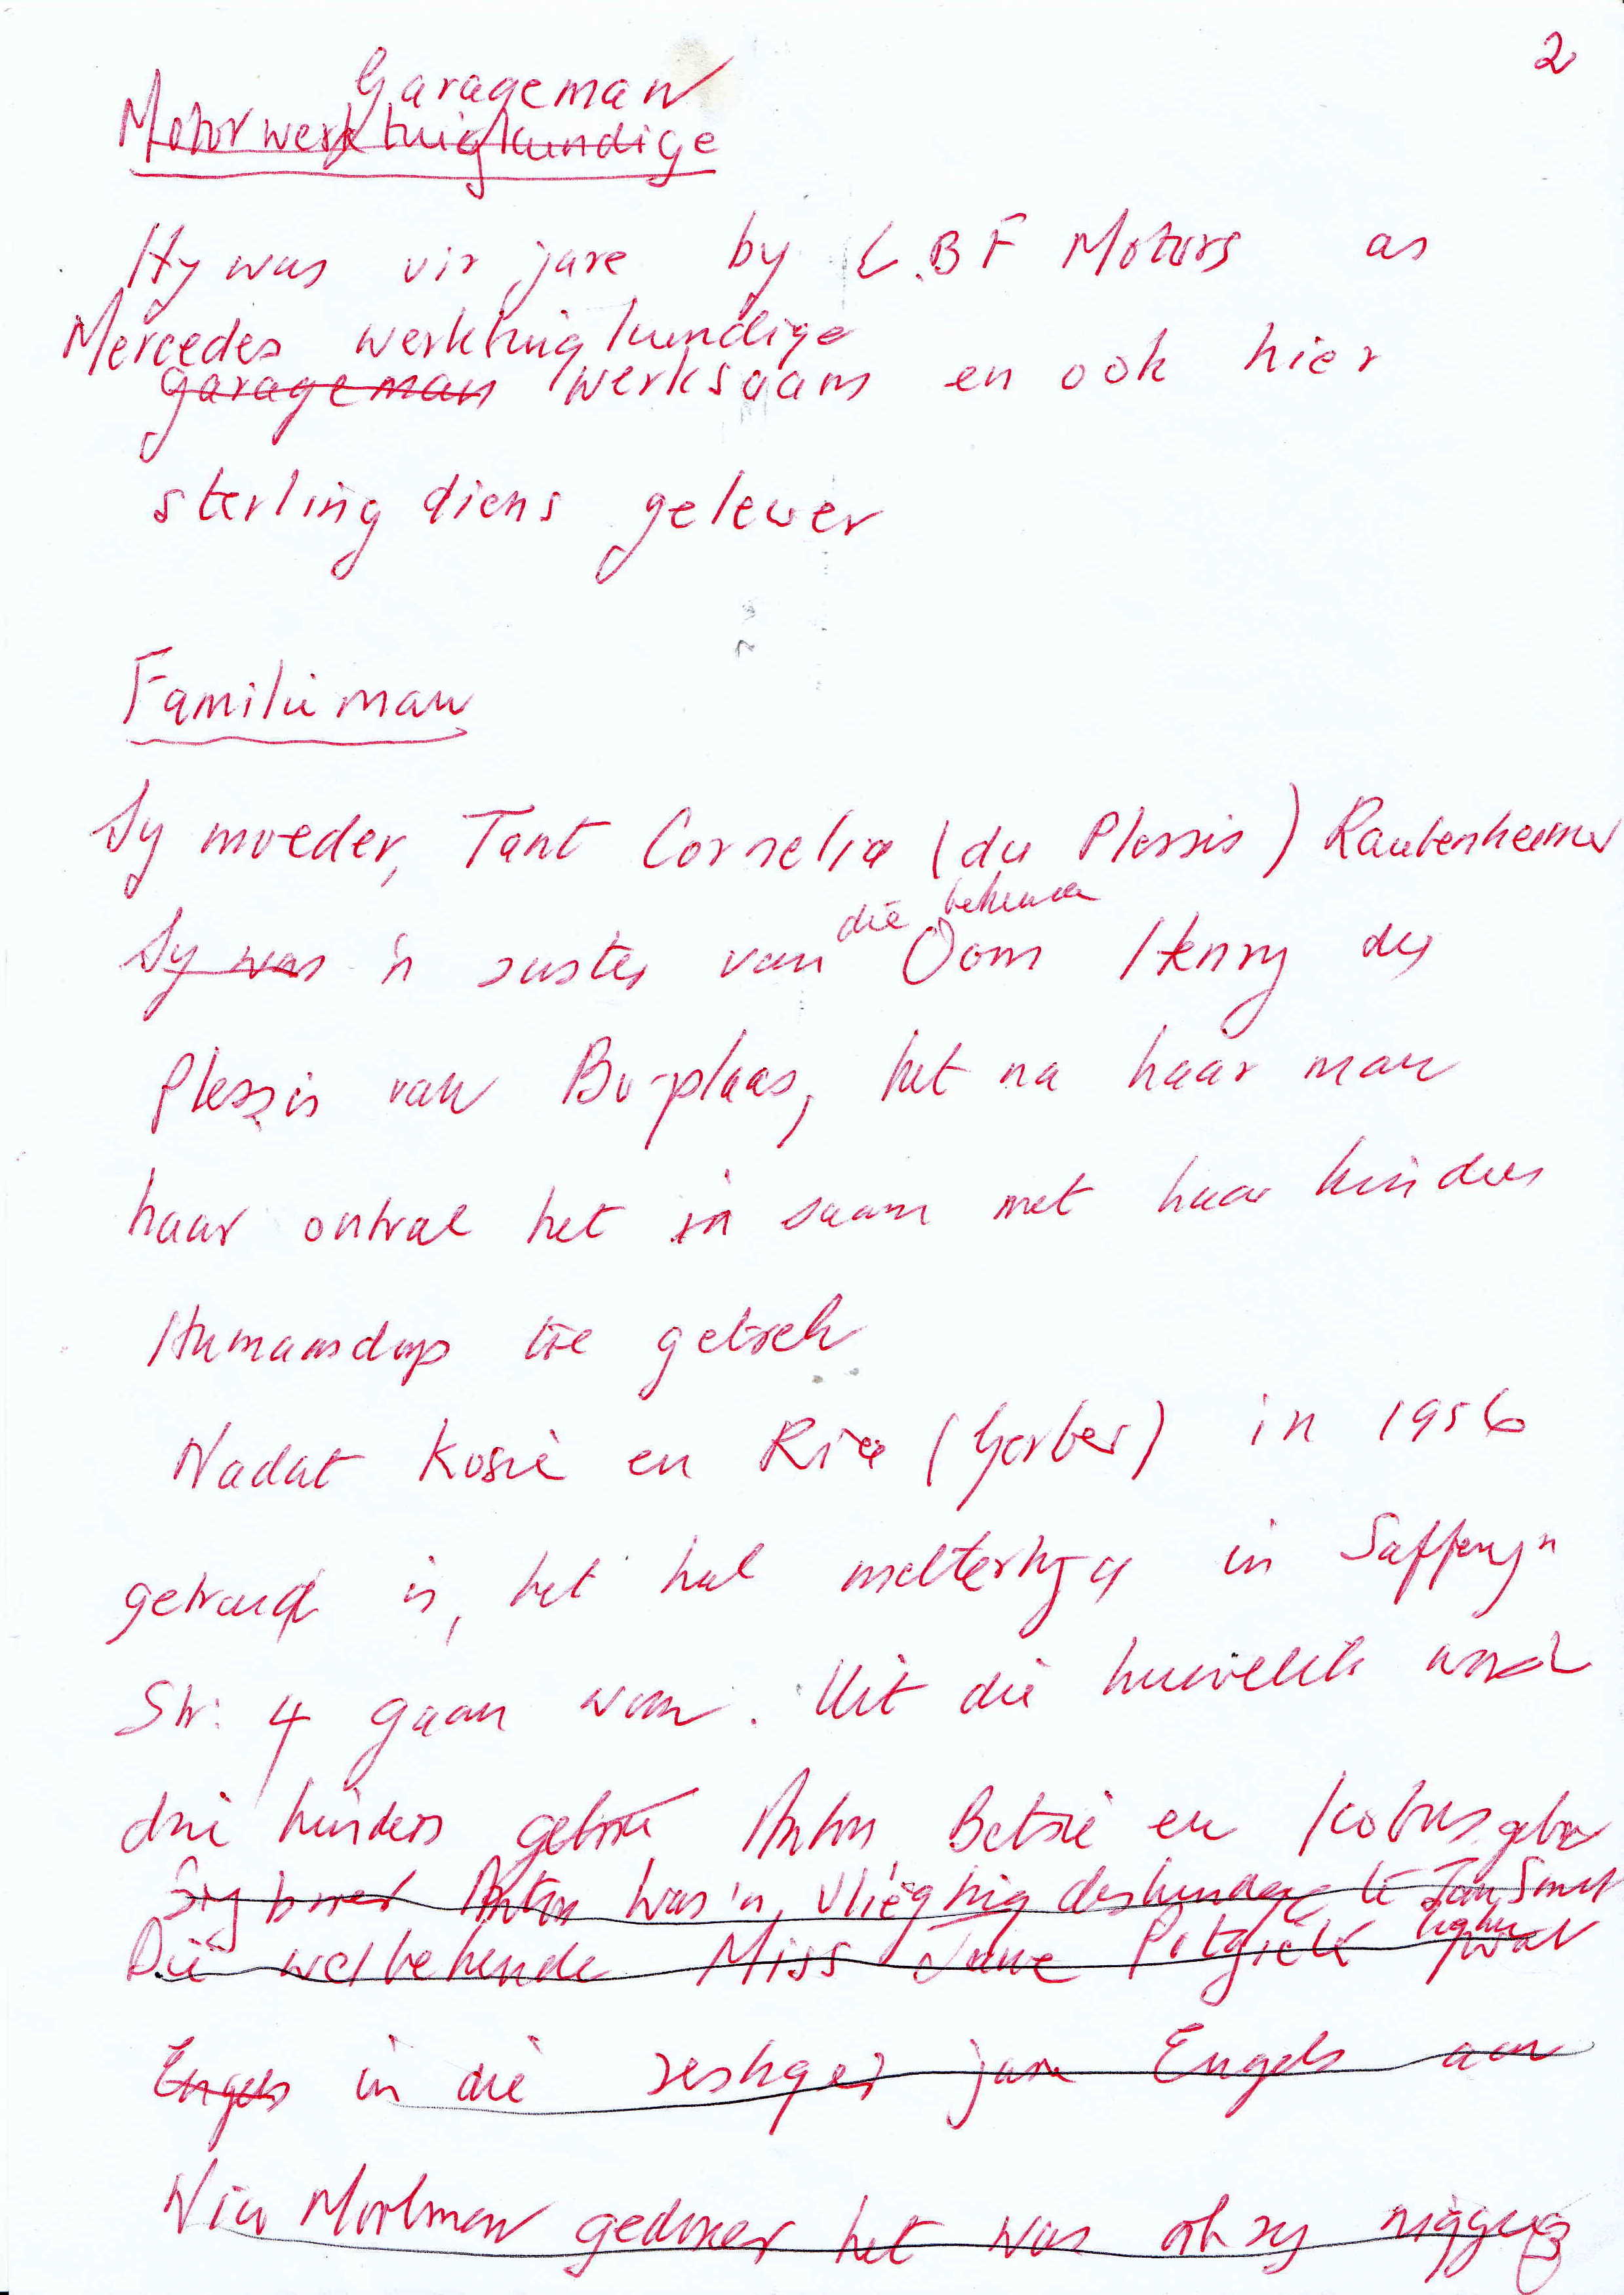 2
Garageman
Motorwerktuigkundige
Hy was vir jare by L.B F Motors as
Mercedes werktuigkundige
garageman werksaam en ook hier
sterling diens gelewer
Familie man
Sy moeder, Tant Cornelia (du Plessis) Raubenheimer
die bekende
Sy was 'n suster van Oom Henry du
Plessis van Bo-plaas, het na haar man
haar ontval het in saam met haar kinders
Humansdorp toe getrek
Nadat Kosie en Ria (Gerber) in 1956
getroud is, het hul in Saffraan
Str. 4 gaan woon. Uit die huwelik word
drie kinders gebore Anton Betsie en Kobus gebore
Sy broer Anton was 'n Vliegtuig deskundige te Jan Smut
Die welbekende Miss Potgieter wat
Engels in die sestiger jare Engels aan
gedoseer het was ook sy niggie